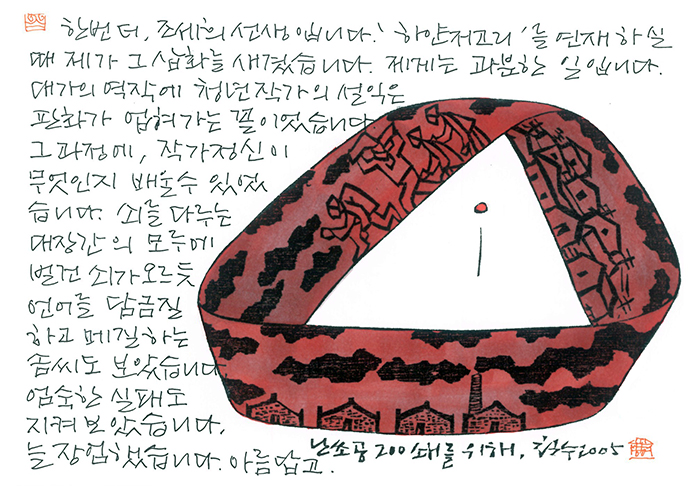 한번 더, 조세희 선생입니다. '하얀저고리'를 연재하실
때 제가 그 삽화를 새겼습니다. 제게는 과분한 일입니다.
대가의 역작에 청년작가의 설익은
판화가 업혀가는 꼴이었습니다.
그 과정에, 작가정신이
무엇인지 배울수 있었
습니다. 쇠를 다루는
대장간의 모루에
벌건 쇠가 오르듯
언어를 담금질
하고 메질하는
솜씨도 보았습니다.
엄숙한 실패도
지켜보았습니다.
늘 장엄했습니다. 아름답고.
난쏘공 200쇄를 위해, 철수 2005